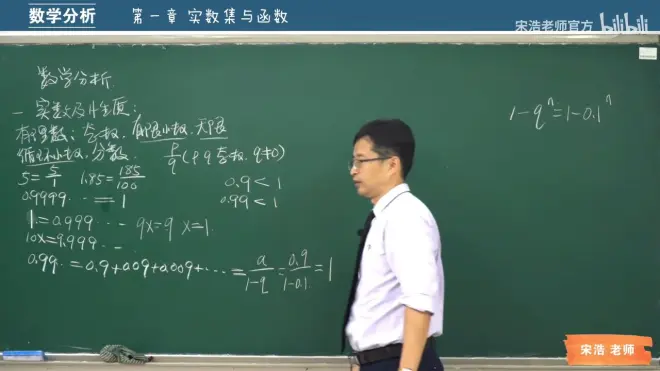 数学分析
第一章 实数集与函数
宋浩老师官方 bilibili
数学分析
一 实数及性质:
有理数:整数,有限小数,无限
循环小数,分数. p/q (p q 整数, q≠0)
5=5/1 1.85=185/100
0.9<1
0.9999…=1
0.99<1
=0.999… 9x=9 x=1.
10x=9.999…
0.99..=0.9+0.09+0.009+…=a/(1-q)=0.9/(1-0.1)=1
1-qⁿ=1-0.1ⁿ
宋浩 老师